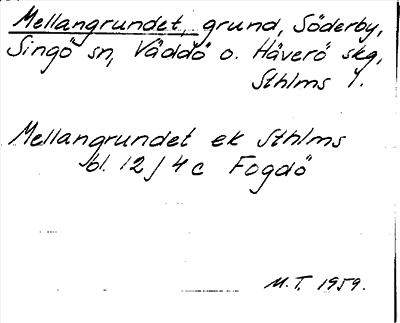 Mellangrundet, grund, Söderby,
Singö sn, Väddö o. Häverö skg,
Sthlms l.
Mellangrundet ek Sthlms
bl. 12 J 4 c Fogdö
M.T. 1959.